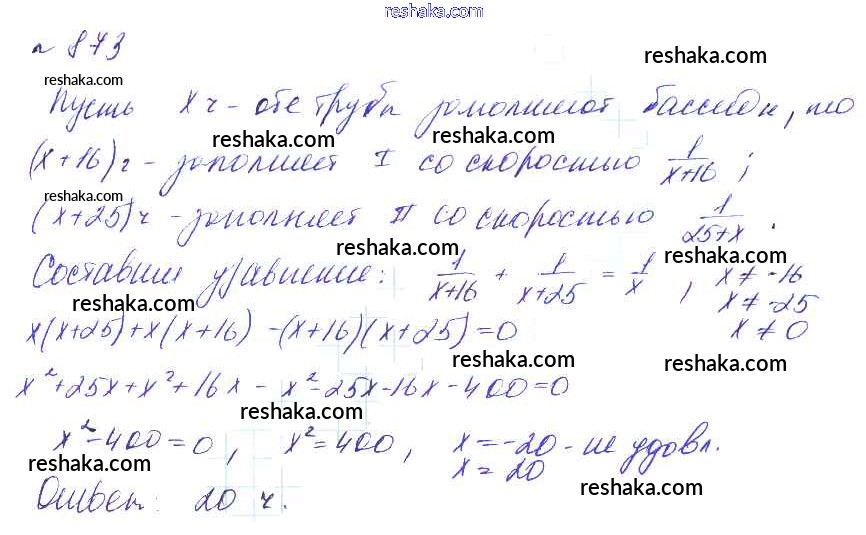 reshaka.com
№ 873
reshaka.com
reshaka.com
Пусть x ч - обе трубы заполняют бассейн, то
reshaka.com
reshaka.com
(x+16) ч - заполняет I со скоростью 1/(x+16) ;
reshaka.com
reshaka.com
(x+25) ч - заполняет II со скоростью 1/(25+x) .
reshaka.com
reshaka.com
Составим уравнение: 1/(x+16) + 1/(x+25) = 1/x , x ≠ -16
x ≠ -25
x ≠ 0
reshaka.com
x(x+25)+x(x+16) -(x+16)(x+25)=0
reshaka.com
reshaka.com
x²+25x+x²+16x - x²-25x-16x-400=0
reshaka.com
x²-400=0, x²=400, x=-20 - не удовл.
x=20
reshaka.com
reshaka.com
Ответ: 20 ч.
reshaka.com
reshaka.com